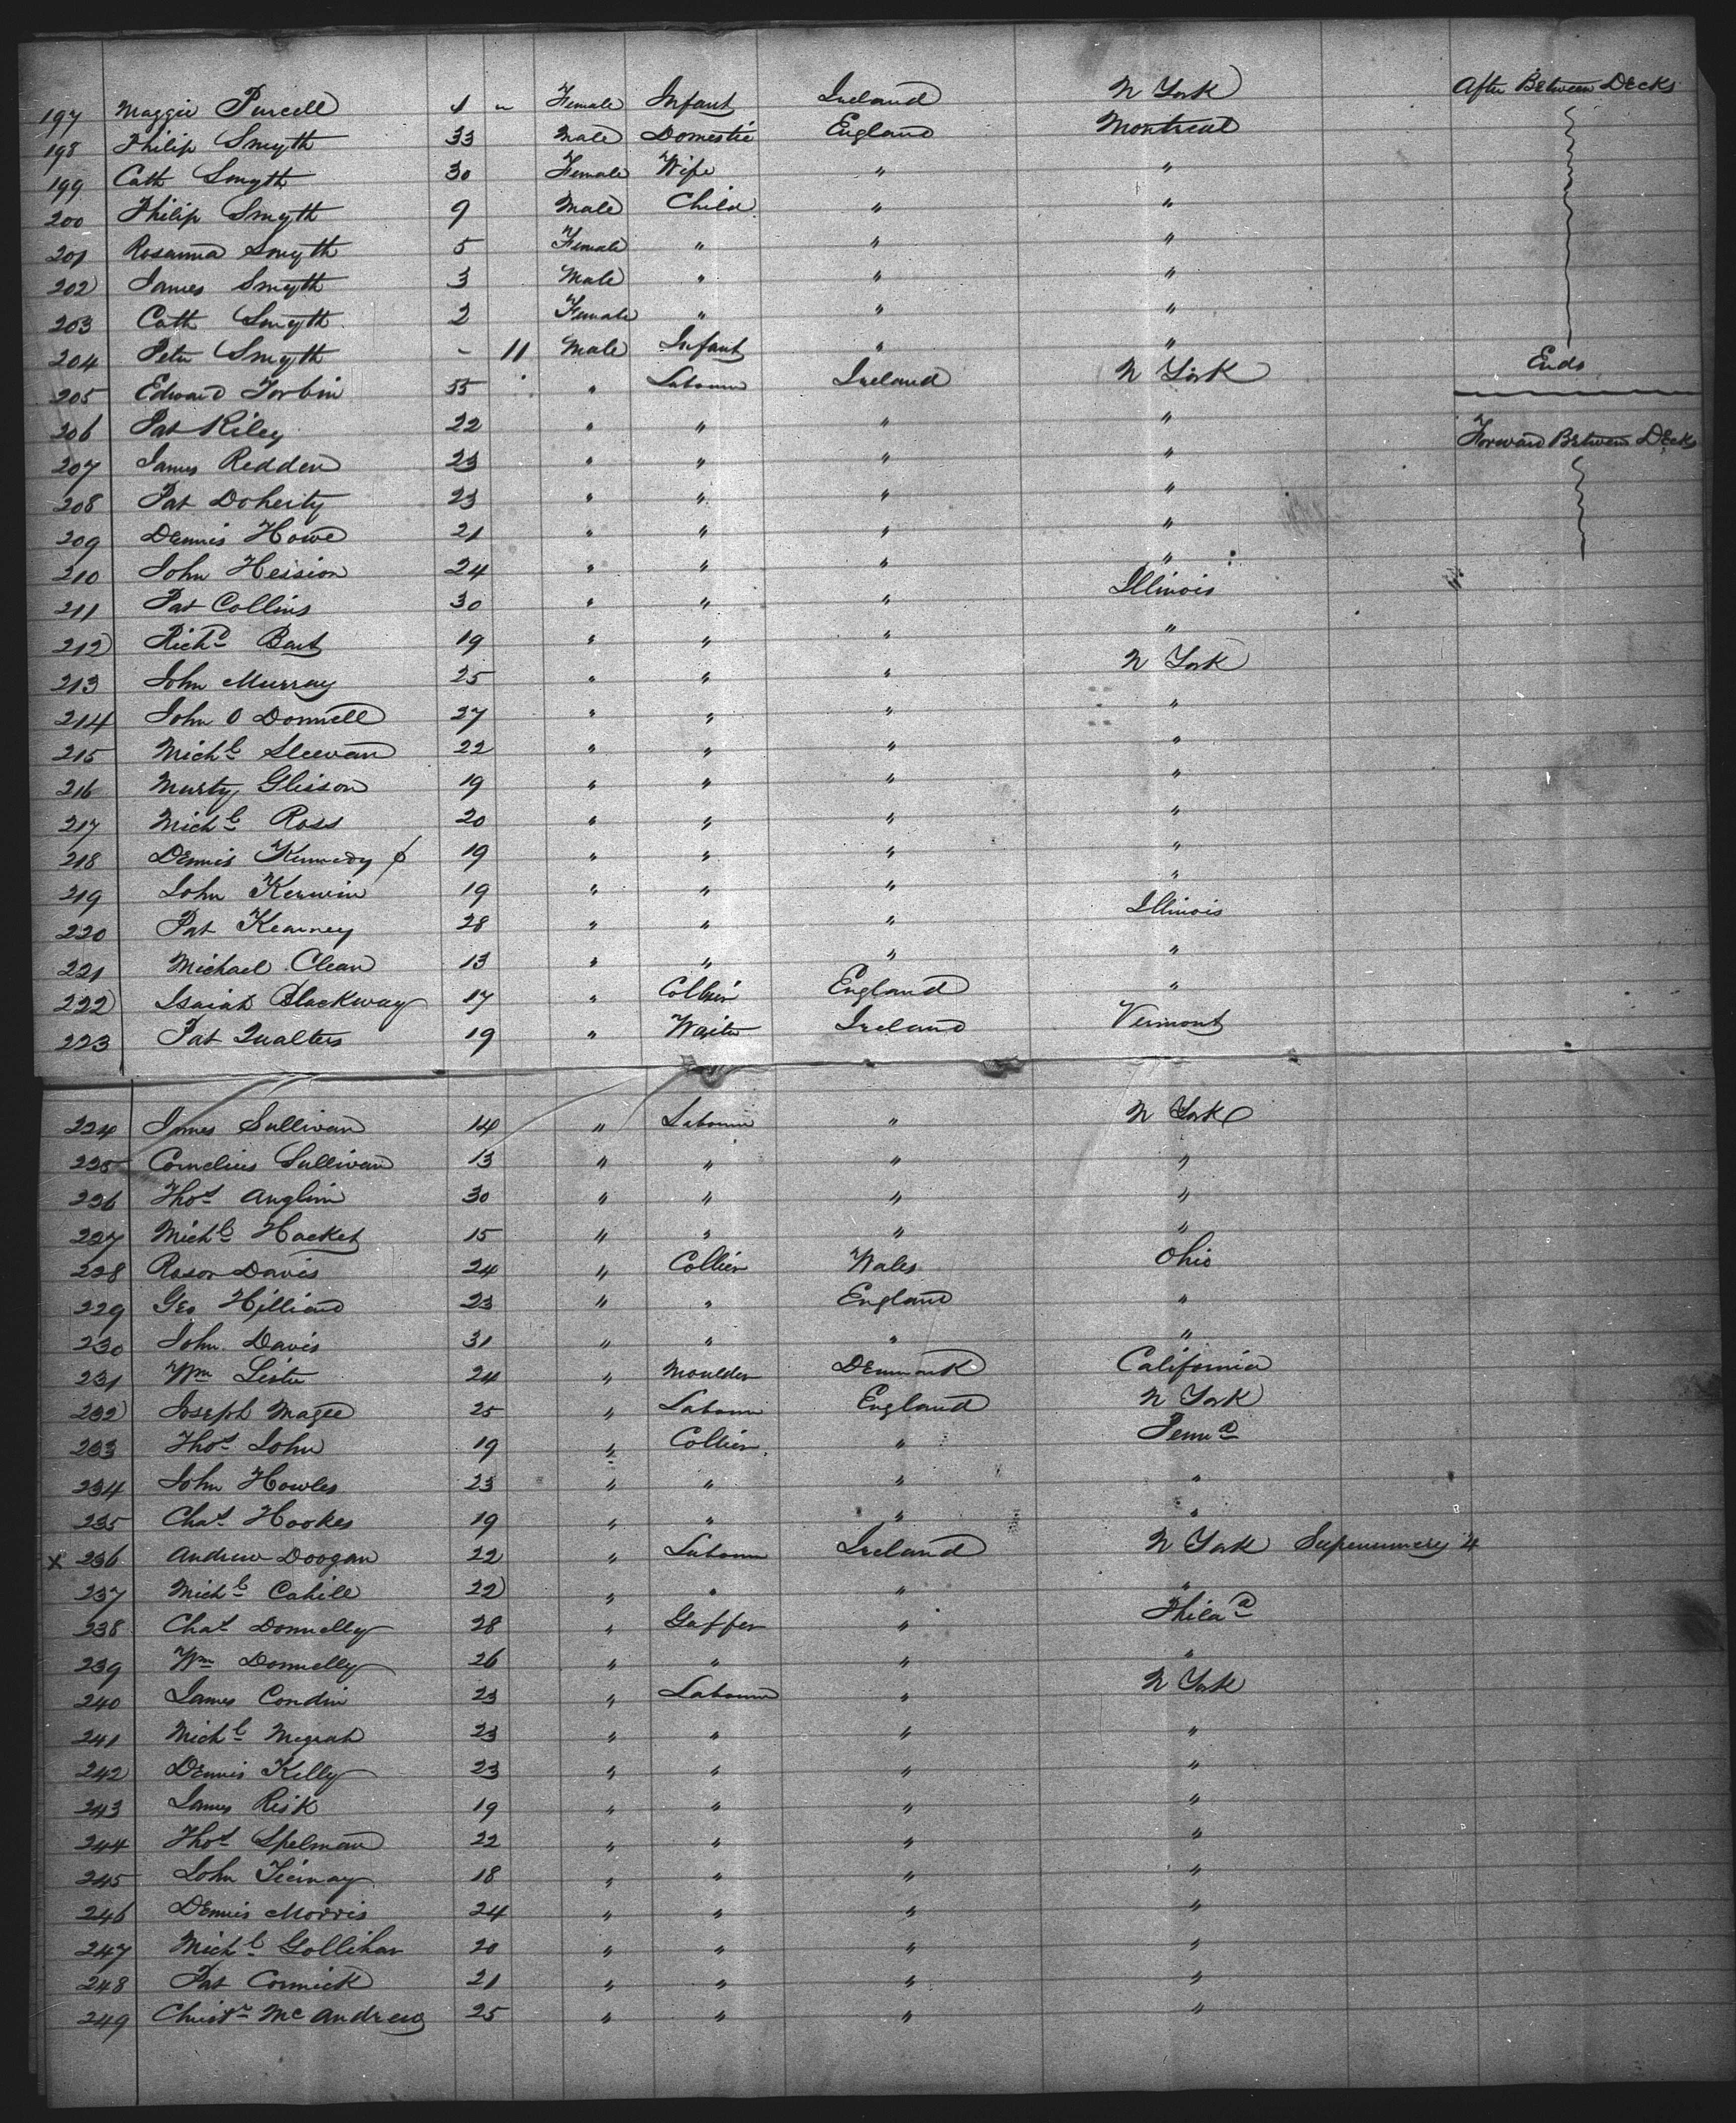 197 Maggie Purcell 1 " Female Infant Ireland N York After Between Decks
198 Philip Smyth 33 Male Domestic England Montreal
199 Cath Smyth 30 Female Wife " "
200 Philip Smyth 9 Male Child " "
201 Rosanna Smyth 5 Female " " "
202 James Smyth 3 Male " " "
203 Cath Smyth 2 Female " " "
204 Peter Smyth - 11 Male Infant " " Ends
205 Edward Torbin 55 " Labourer Ireland N York
206 Pat Riley 22 " " " " Forward Between Decks
207 James Redden 23 " " " "
208 Pat Doherty 23 " " " "
209 Dennis Howe 21 " " " "
210 John Hession 24 " " " "
211 Pat Collins 30 " " " Illinois
212 Richd 19 " " " "
213 John Murray 25 " " " N York
214 John O Donnell 27 " " " "
215 Michl Sleevan 22 " " " "
216 Murty Gleison 19 " " " "
217 Michl Ross 20 " " " "
218 Dennis Kennedy 19 " " " "
219 John Kerwin 19 " " " "
220 Pat Kearney 28 " " " Illinois
221 Michael Clean 13 " " " "
222 Isaiah Blackway 17 " Collier England "
223 Pat Qualters 19 " Waiter Ireland Vermont
224 James Sullivan 14 " Labourer " N York
225 Cornelius Sullivan 13 " " " "
226 Thos Anglim 30 " " " "
227 Michl Hacket 15 " " " "
228 Rosor Davis 24 " Collier Wales Ohio
229 Geo Hilliard 23 " " England "
230 John Davis 31 " " " "
231 Wm Lister 24 " Moulder Denmark California
232 Joseph Magee 25 " Labourer England N York
233 Thos John 19 " Collier " Penna
234 John Howles 23 " " " "
235 Chas Hookes 19 " " " "
x 236 Andrew Doogan 22 " Labourer Ireland N York Supernumery 4
237 Michl Cahill 22 " " " "
238 Chas Donnelly 28 " Gaffer " Phila
239 Wm Donnelly 26 " " " "
240 James Condin 23 " Labourer " N York
241 Michl Megrah 23 " " " "
242 Dennis Killy 23 " " " "
243 James Risk 19 " " " "
244 Thos Spelman 22 " " " "
245 John Tiernay 18 " " " "
246 Dennis Morris 24 " " " "
247 Michl Gollihar 20 " " " "
248 Pat Cormick 21 " " " "
249 Christr McAndrew 25 " " " "